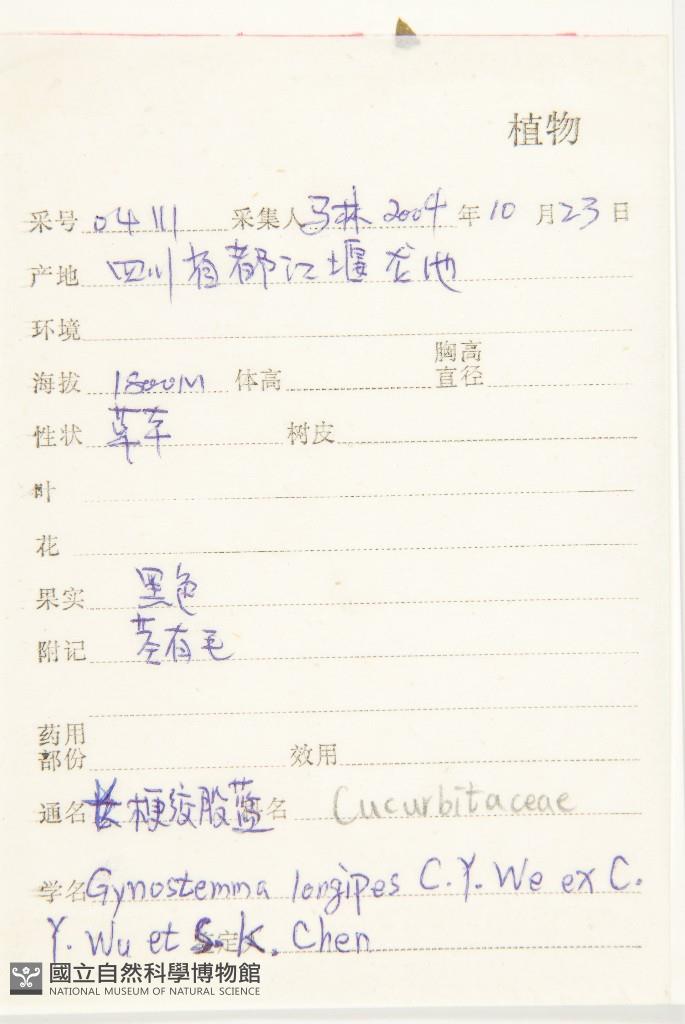 植物
采号 04111 采集人 马林 2004 年 10 月 23 日
产地 四川省都江堰龙池
环境
海拔 1800M 体高 胸高直径
性状 草本 树皮
叶
花
果实 黑色
附记 茎有毛
药用部份 效用
通名 长梗绞股蓝 科名 Cucurbitaceae
学名 Gynostemma longipes C.Y. We ex C.
Y. Wu et S.K. Chen
國立自然科學博物館
NATIONAL MUSEUM OF NATURAL SCIENCE